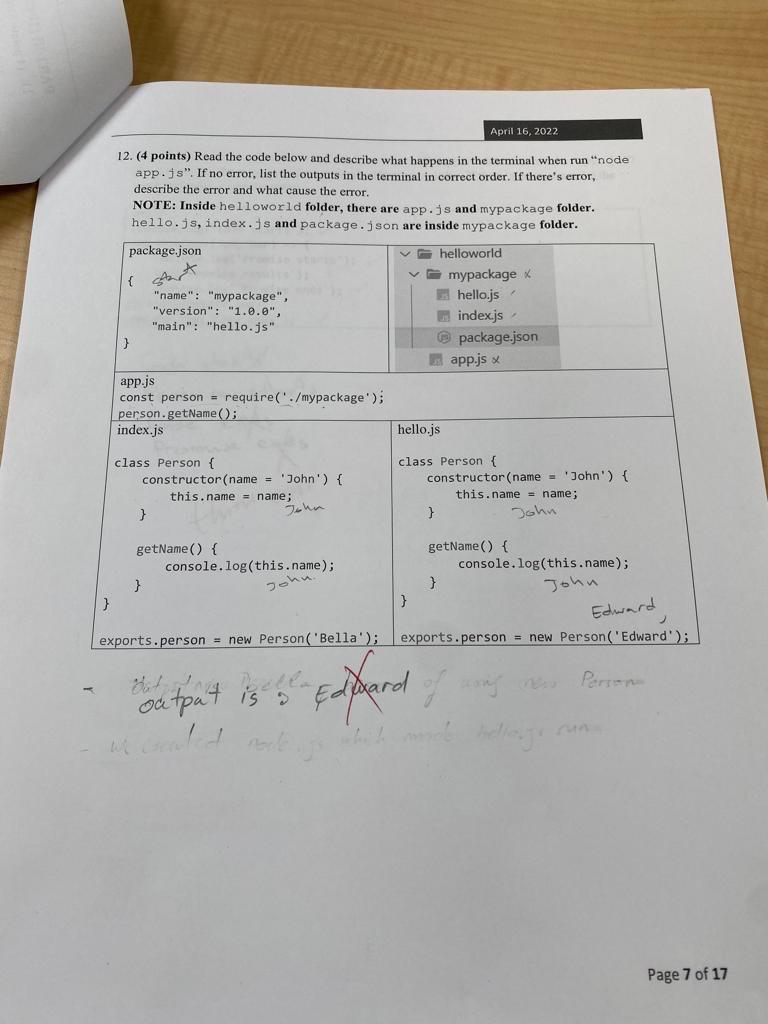 April 16, 2022
12. (4 points) Read the code below and describe what happens in the terminal when run "node
app.js". If no error, list the outputs in the terminal in correct order. If there's error,
describe the error and what cause the error.
NOTE: Inside helloworld folder, there are app.js and mypackage folder.
hello.js, index.js and package.json are inside mypackage folder.
package.json
{
"name": "mypackage",
"version": "1.0.0",
"main": "hello.js"
}
helloworld
mypackage
hello.js
index.js
package.json
app.js
app.js
const person = require('./mypackage');
person.getName();
index.js
class Person {
constructor(name = 'John') {
this.name = name;
John
}
getName() {
console.log(this.name);
John
}
}
exports.person = new Person('Bella');
hello.js
class Person {
constructor(name = 'John') {
this.name = name;
John
}
getName() {
console.log(this.name);
John
}
}
Edward,
exports.person = new Person('Edward');
output is Edward
of using new Person
- we node.js which hello.js run
Page 7 of 17